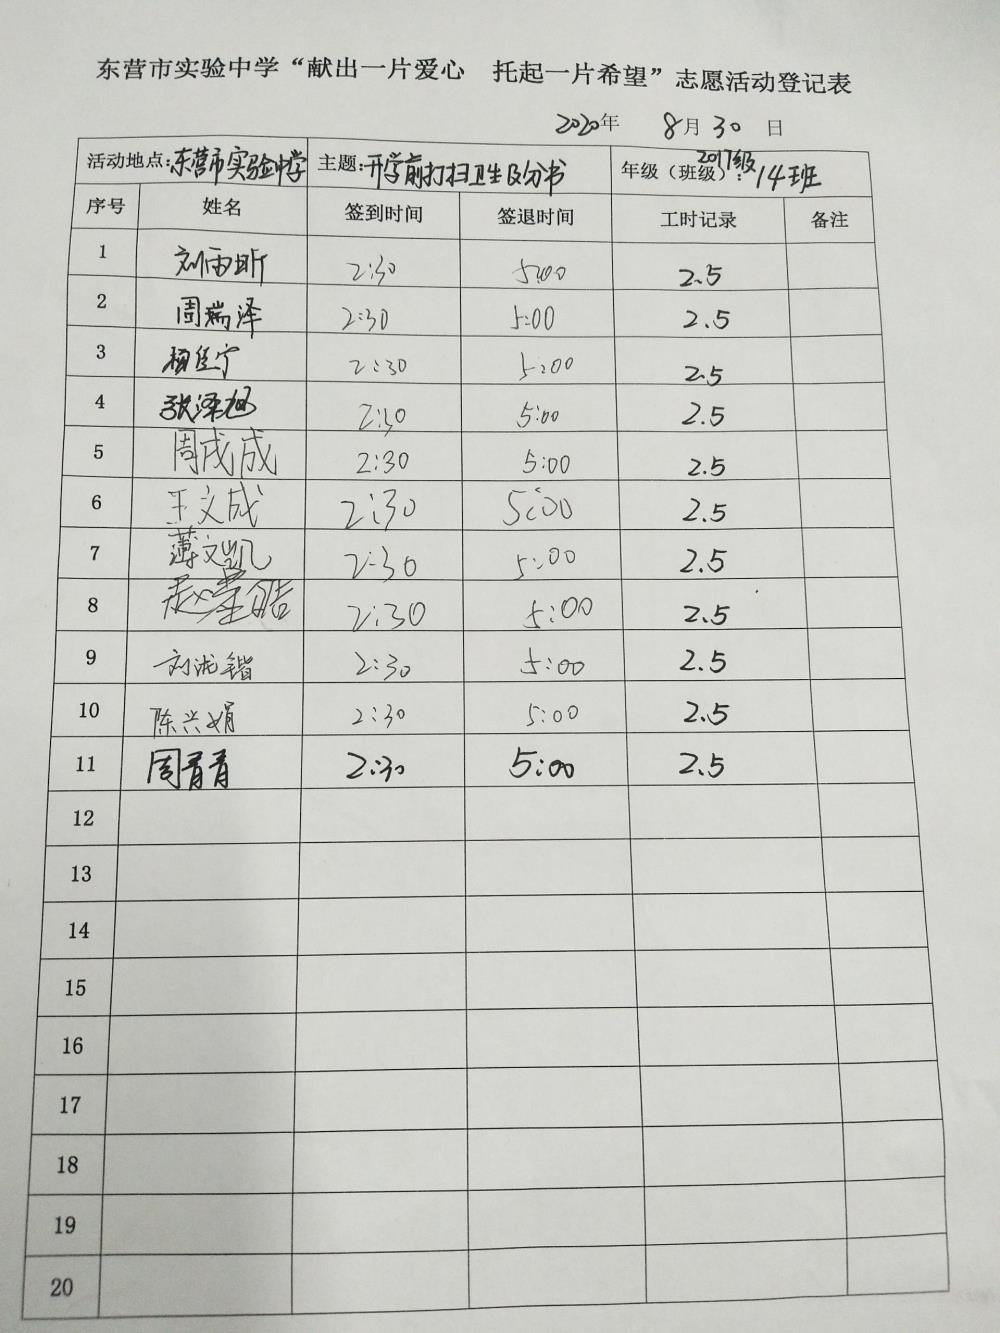 东营市实验中学“献出一片爱心 托起一片希望”志愿活动登记表
2020年 8月30日
活动地点:东营市实验中学 主题:开学前打扫卫生及分书 年级（班级）:2017级14班
序号 姓名 签到时间 签退时间 工时记录 备注
1 刘雨昕 2:30 5:00 2.5
2 周瑞泽 2:30 5:00 2.5
3 杨佳宁 2:30 5:00 2.5
4 张泽旭 2:30 5:00 2.5
5 周成成 2:30 5:00 2.5
6 王文成 2:30 5:00 2.5
7 薄文凯 2:30 5:00 2.5
8 赵 皓 2:30 5:00 2.5
9 刘 锴 2:30 5:00 2.5
10 陈兴娟 2:30 5:00 2.5
11 周青青 2:30 5:00 2.5
12
13
14
15
16
17
18
19
20